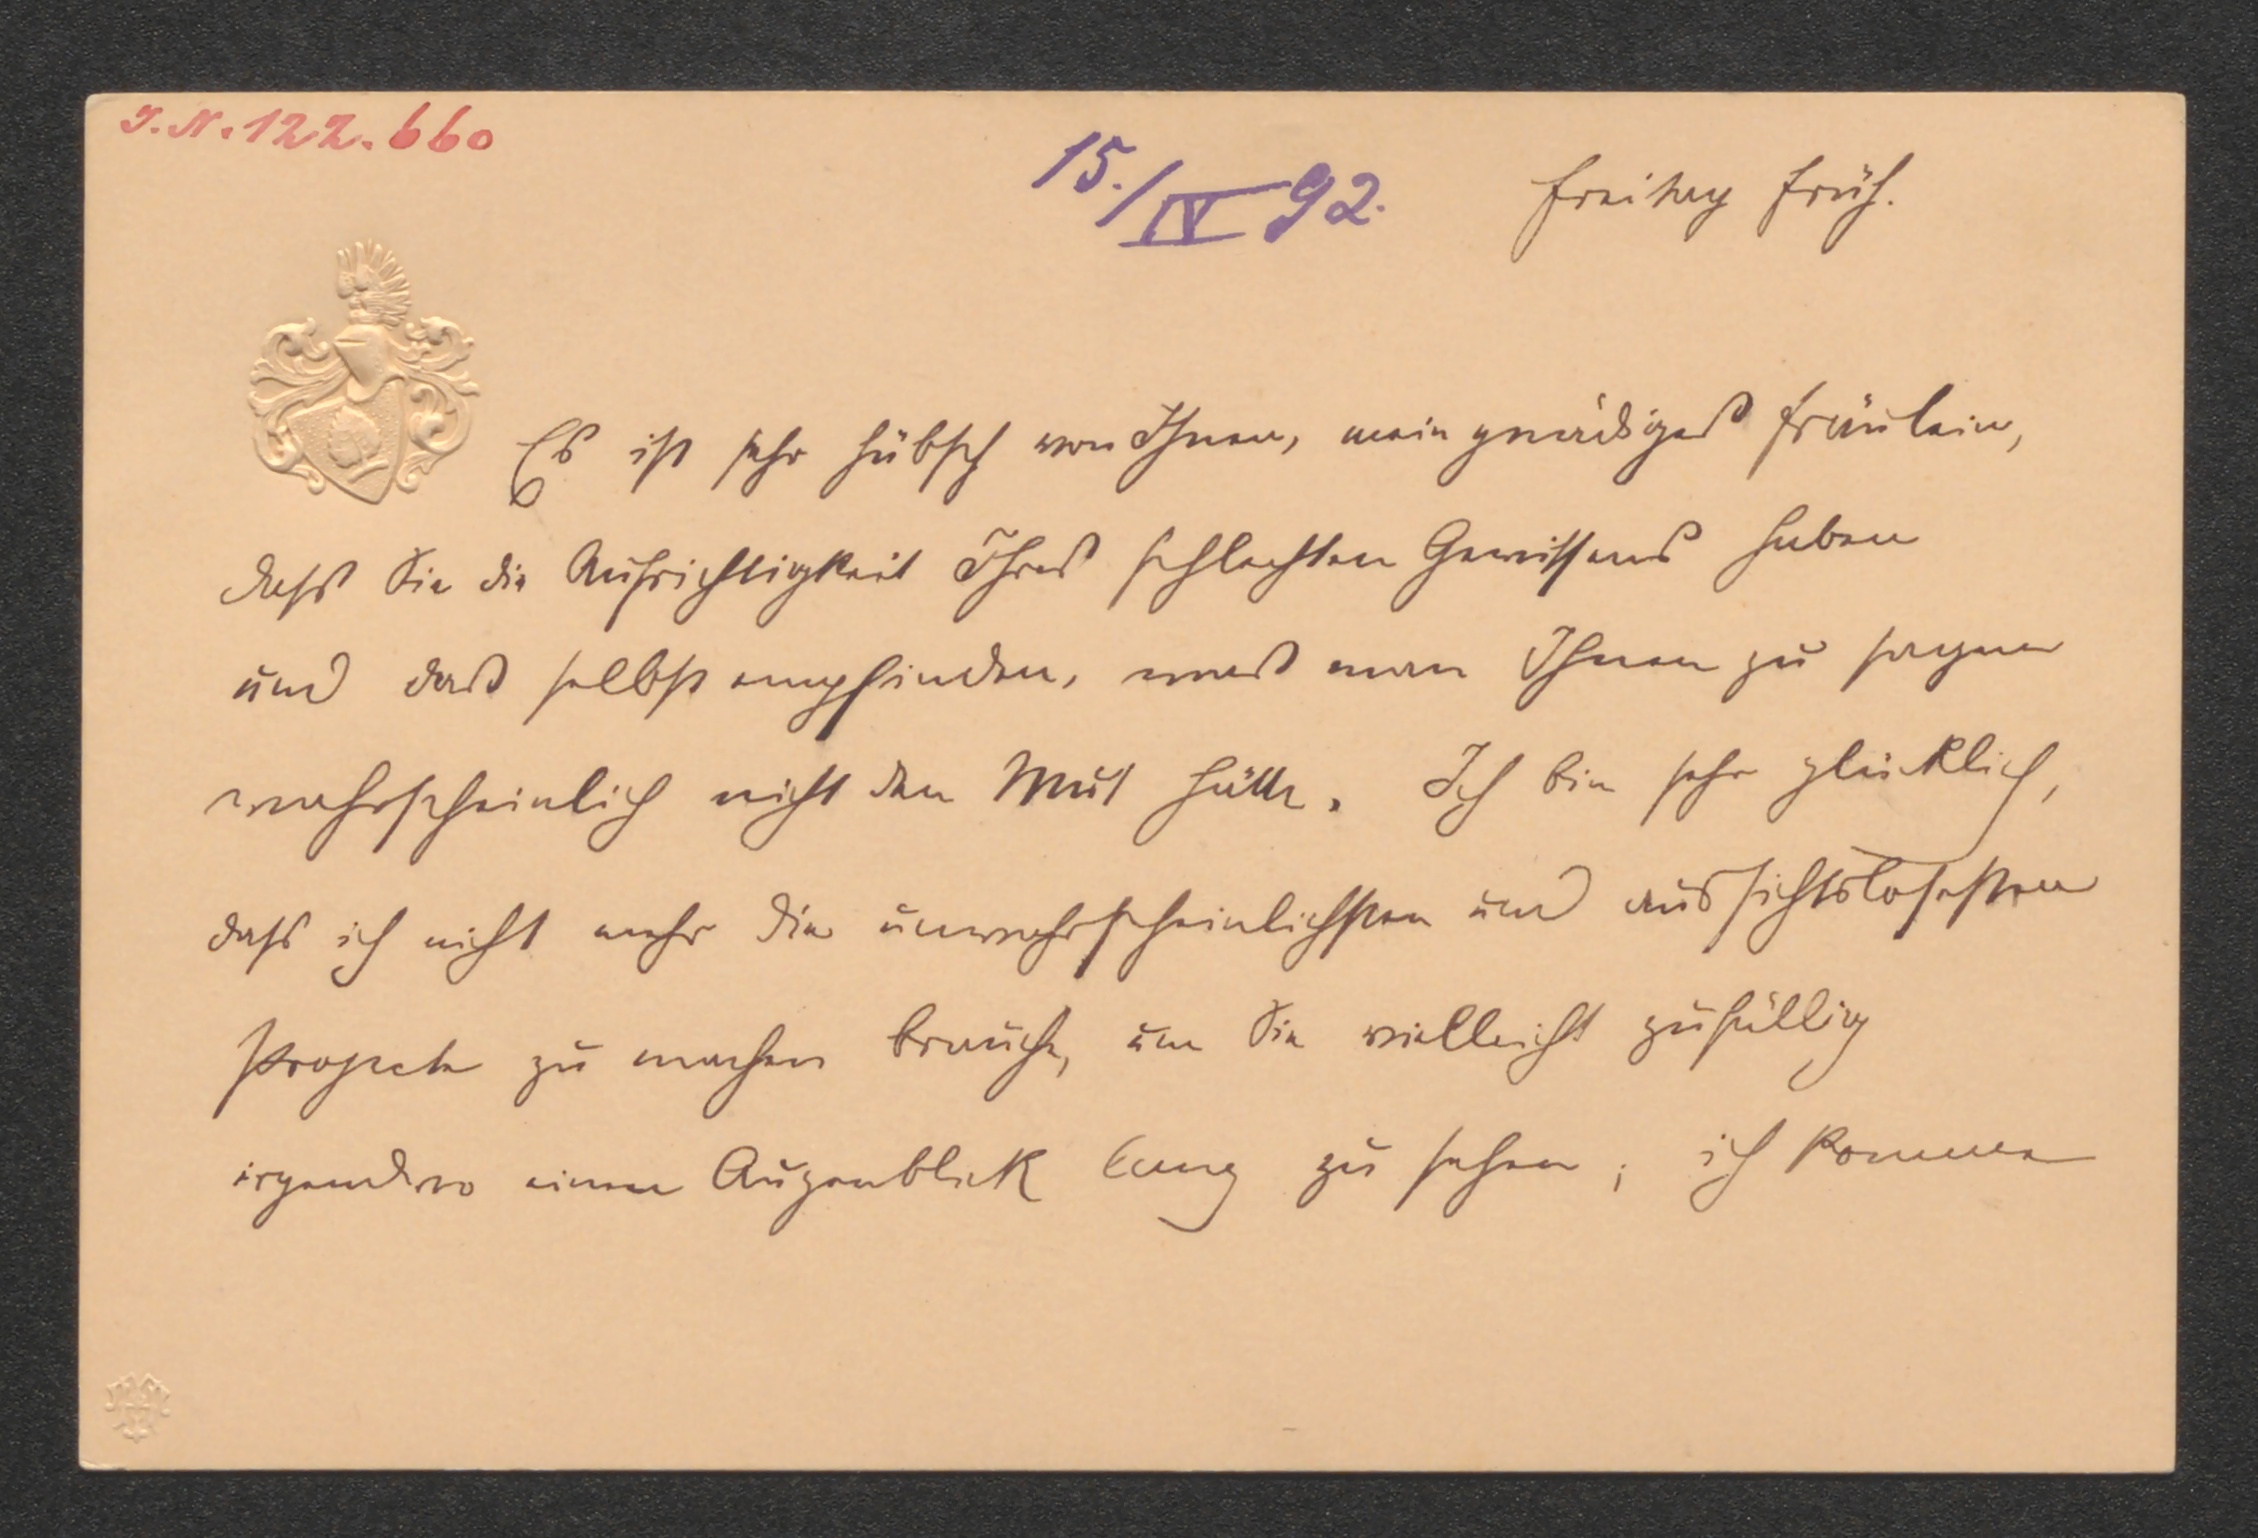 J.N. 122.660
15./IV 92.
Freitag früh.
Es ist sehr hübsch von Ihnen, mein gnädiges Fräulein,
dass Sie die Aufrichtigkeit Ihres schlechten Gewissens haben
und das selbst empfinden, was man Ihnen zu sagen
wahrscheinlich nicht den Mut hätte. Ich bin sehr glücklich,
dass ich nicht mehr die unwahrscheinlichsten und aussichtslosesten
Projecte zu machen brauche, um Sie vielleicht zufällig
irgendwo einen Augenblick lang zu sehen; ich komme